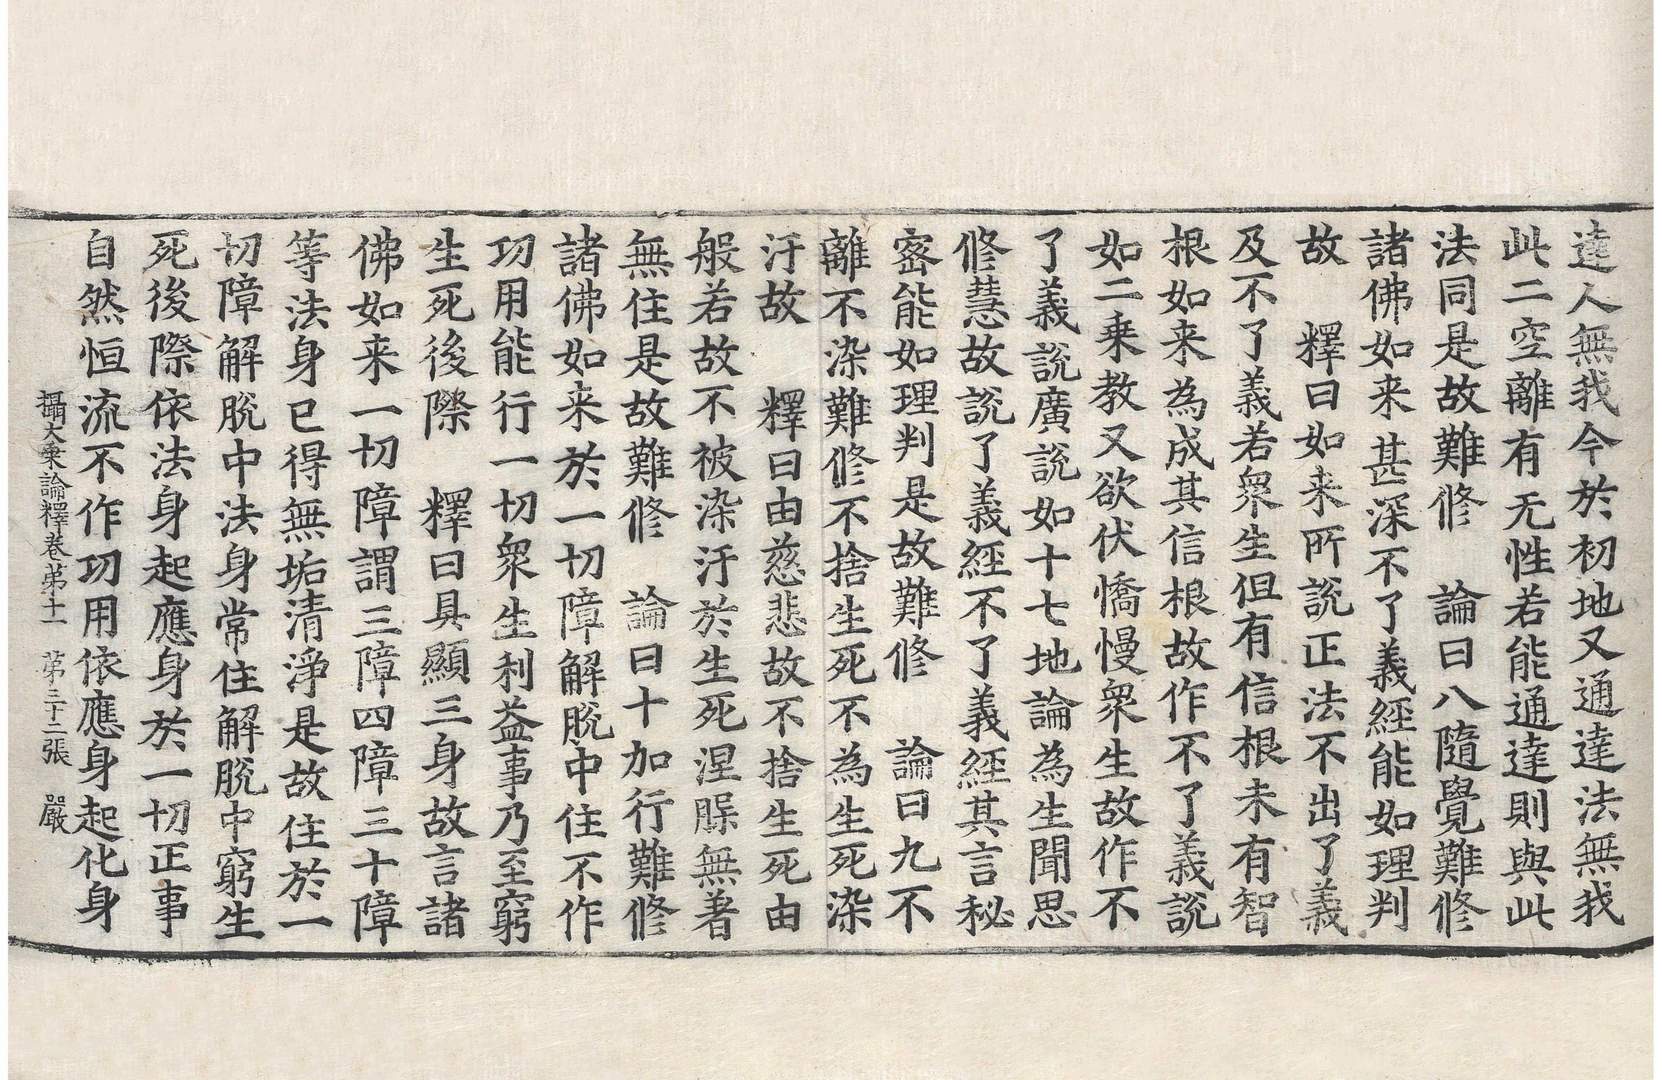 達人無我今於初地又通達法無我
此二空離有无性若能通達則與此
法同是故難修　論曰八隨覺難修
諸佛如来甚深不了義經能如理判
故　釋曰如来所說正法不出了義
及不了義若衆生但有信根未有智
根如来為成其信根故作不了義說
如二乗教又欲伏憍慢衆生故作不
了義說廣說如十七地論為生聞思
修慧故說了義經不了義經其言秘
密能如理判是故難修　論曰九不
離不染難修不捨生死不為生死染
汙故　釋曰由慈悲故不捨生死由
般若故不被染汙於生死涅槃無著
無住是故難修　論曰十加行難修
諸佛如来於一切障解脫中住不作
功用能行一切衆生利益事乃至窮
生死後際　釋曰具顯三身故言諸
佛如来一切障謂三障四障三十障
等法身已得無垢清淨是故住於一
切障解脫中法身常住解脫中窮生
死後際依法身起應身於一切正事
自然恒流不作功用依應身起化身
攝大乗論釋卷第十一　第三十二張　嚴